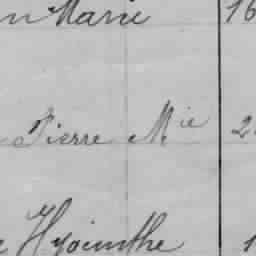 n Marie 16
Pierre Mie 2
Hyacinthe 1